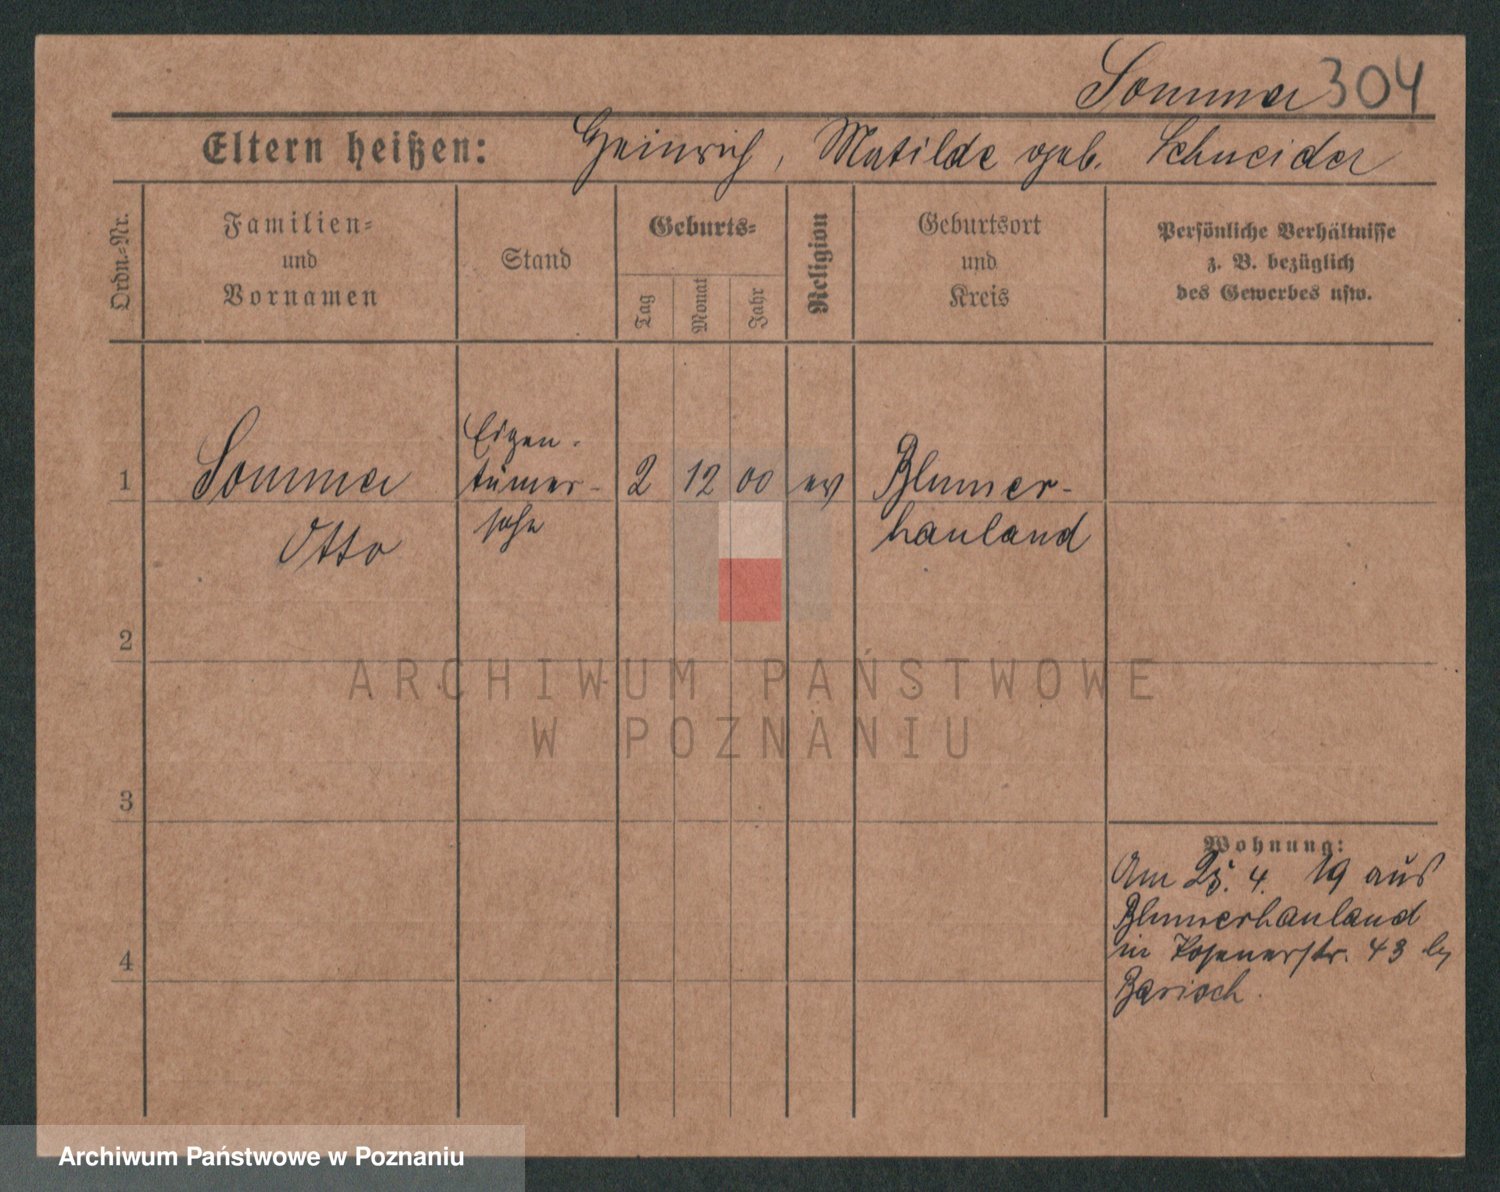 Sommer 304
Eltern heißen: Heinrich, Matilde geb. Schneider
Ordn.-Nr.
Familien-
und
Vornamen
Stand
Geburts-
Tag
Monat
Jahr
Religion
Geburtsort
und
Kreis
Persönliche Verhältnisse
z. B. bezüglich
des Gewerbes usw.
1
Sommer
Otto
Eigen-
tümer-
sohn
2 12 00 ev
Blumer-
hauland
2
3
4
Wohnung:
Am 25. 4. 19 aus
Blumerhauland
in Posenerstr. 43 by
ARCHIWUM PAŃSTWOWE
W POZNANIU
Archiwum Państwowe w Poznaniu